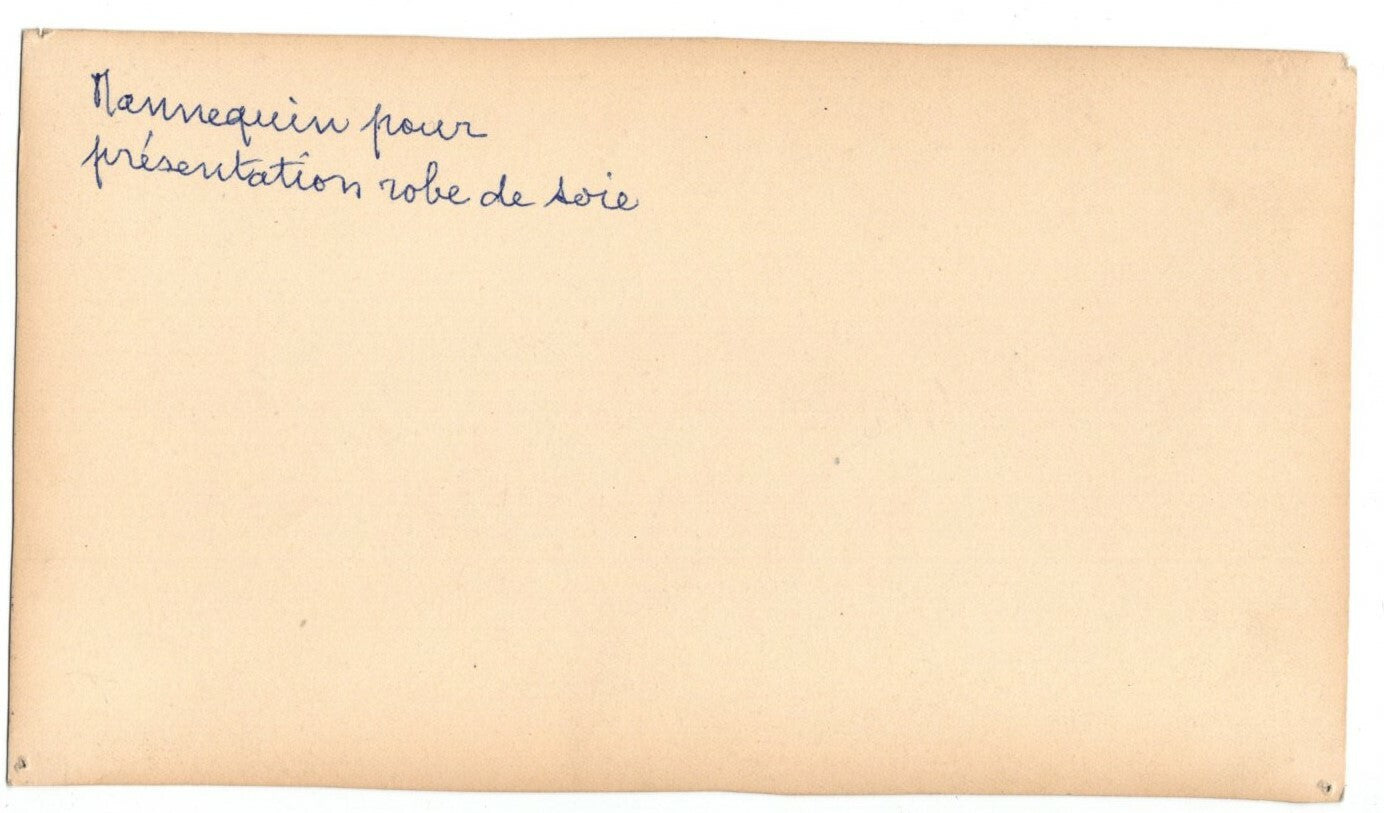 Mannequin pour
présentation robe de soie